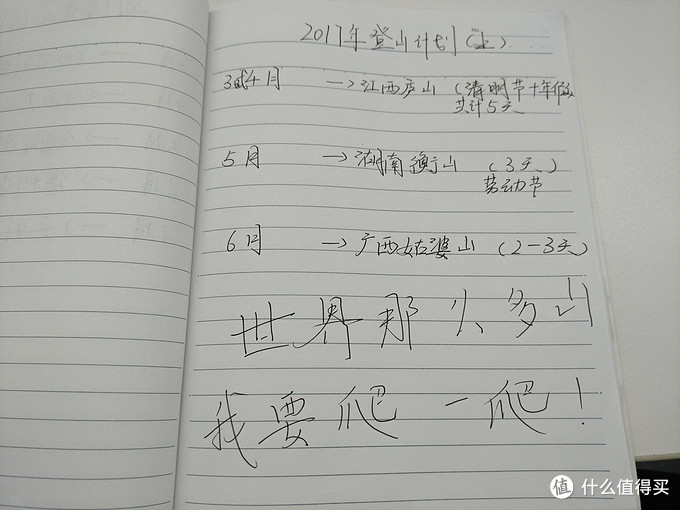 2017年登山计划(上)
3或4月 →江西庐山 (清明节+年假,
共计5天
5月 →湖南衡山 (3天)
劳动节
6月 →广西姑婆山 (2-3天)
世界那么多山
我要爬一爬!
值 什么值得买